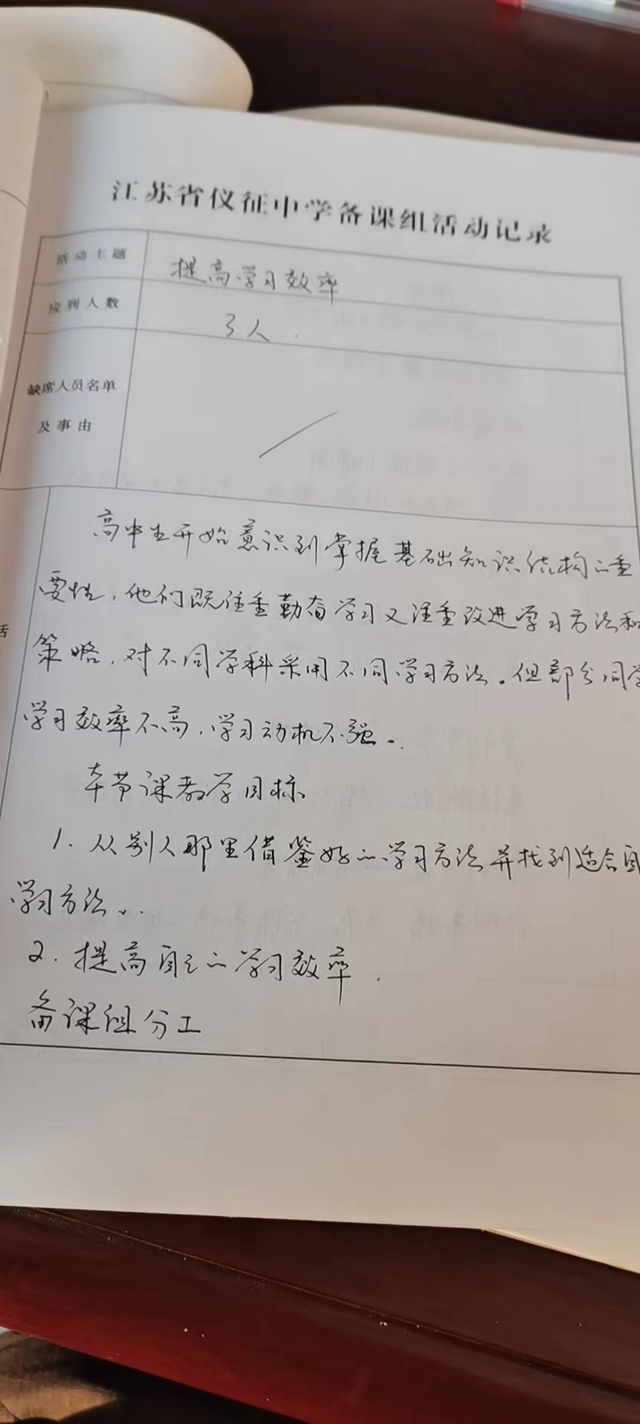 江苏省仪征中学备课组活动记录
活动主题 提高学习效率
应到人数 3人.
缺席人员名单
及事由
高中生开始意识到掌握基础知识结构的重
要性,他们既注重勤奋学习又注重改进学习方法和
活
策略,对不同学科采用不同学习方法。但部分同学
学习效率不高,学习动机不强。
本节课教学目标
1. 从别人那里借鉴好的学习方法并找到适合自
学习方法。
2. 提高自己的学习效率.
备课组分工